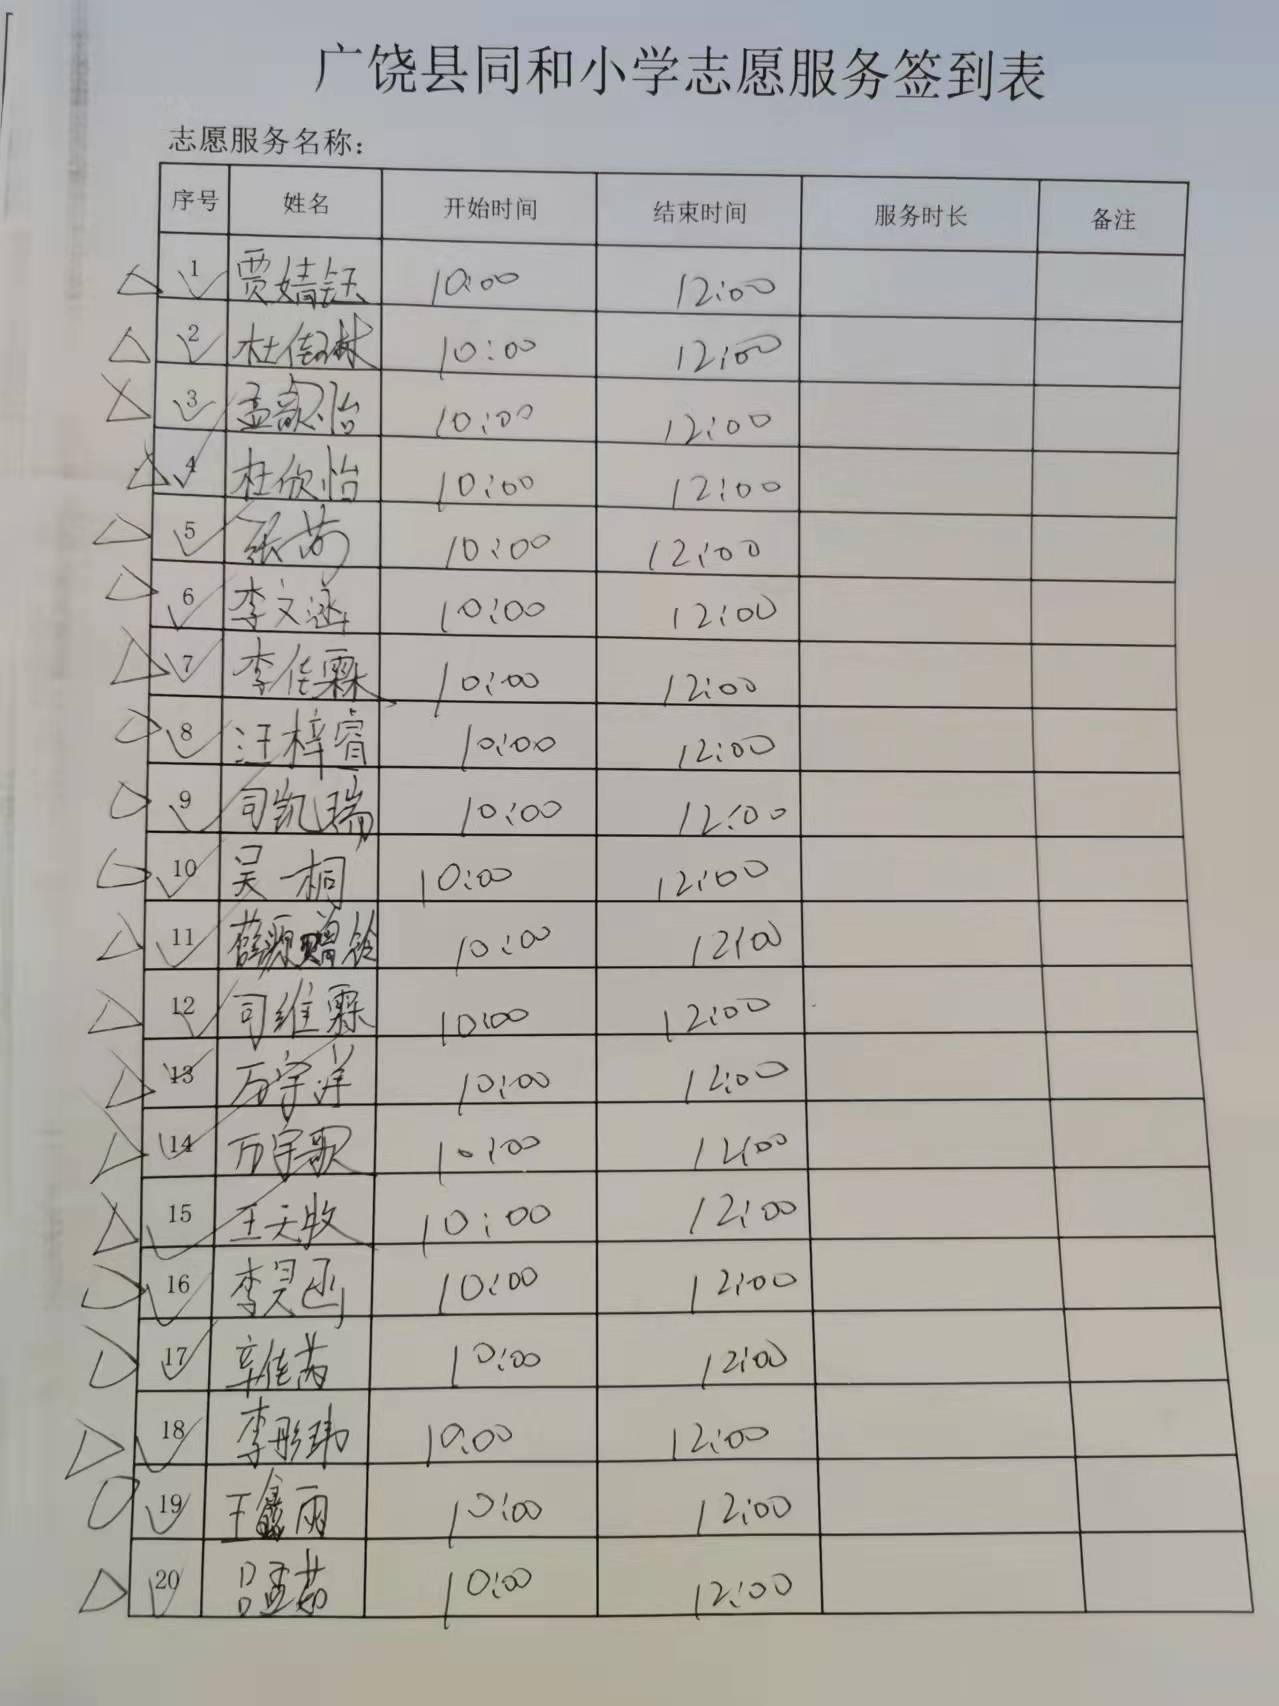 广饶县同和小学志愿服务签到表
志愿服务名称：
序号 姓名 开始时间 结束时间 服务时长 备注
1 贾婧钰 10:00 12:00
2 杜佳霖 10:00 12:00
3 孟歆怡 10:00 12:00
4 杜欣怡 10:00 12:00
5 张芮 10:00 12:00
6 李文涵 10:00 12:00
7 李佳霖 10:00 12:00
8 汪梓睿 10:00 12:00
9 司凯瑞 10:00 12:00
10 吴一桐 10:00 12:00
11 10:00 12:00
12 司维霖 10:00 12:00
13 万宇洋 10:00 12:00
14 万宇歌 10:00 12:00
15 王天牧 10:00 12:00
16 李昊函 10:00 12:00
17 辛佳芮 10:00 12:00
18 李彤玮 10:00 12:00
19 王鑫雨 10:00 12:00
20 吕孟茹 10:00 12:00